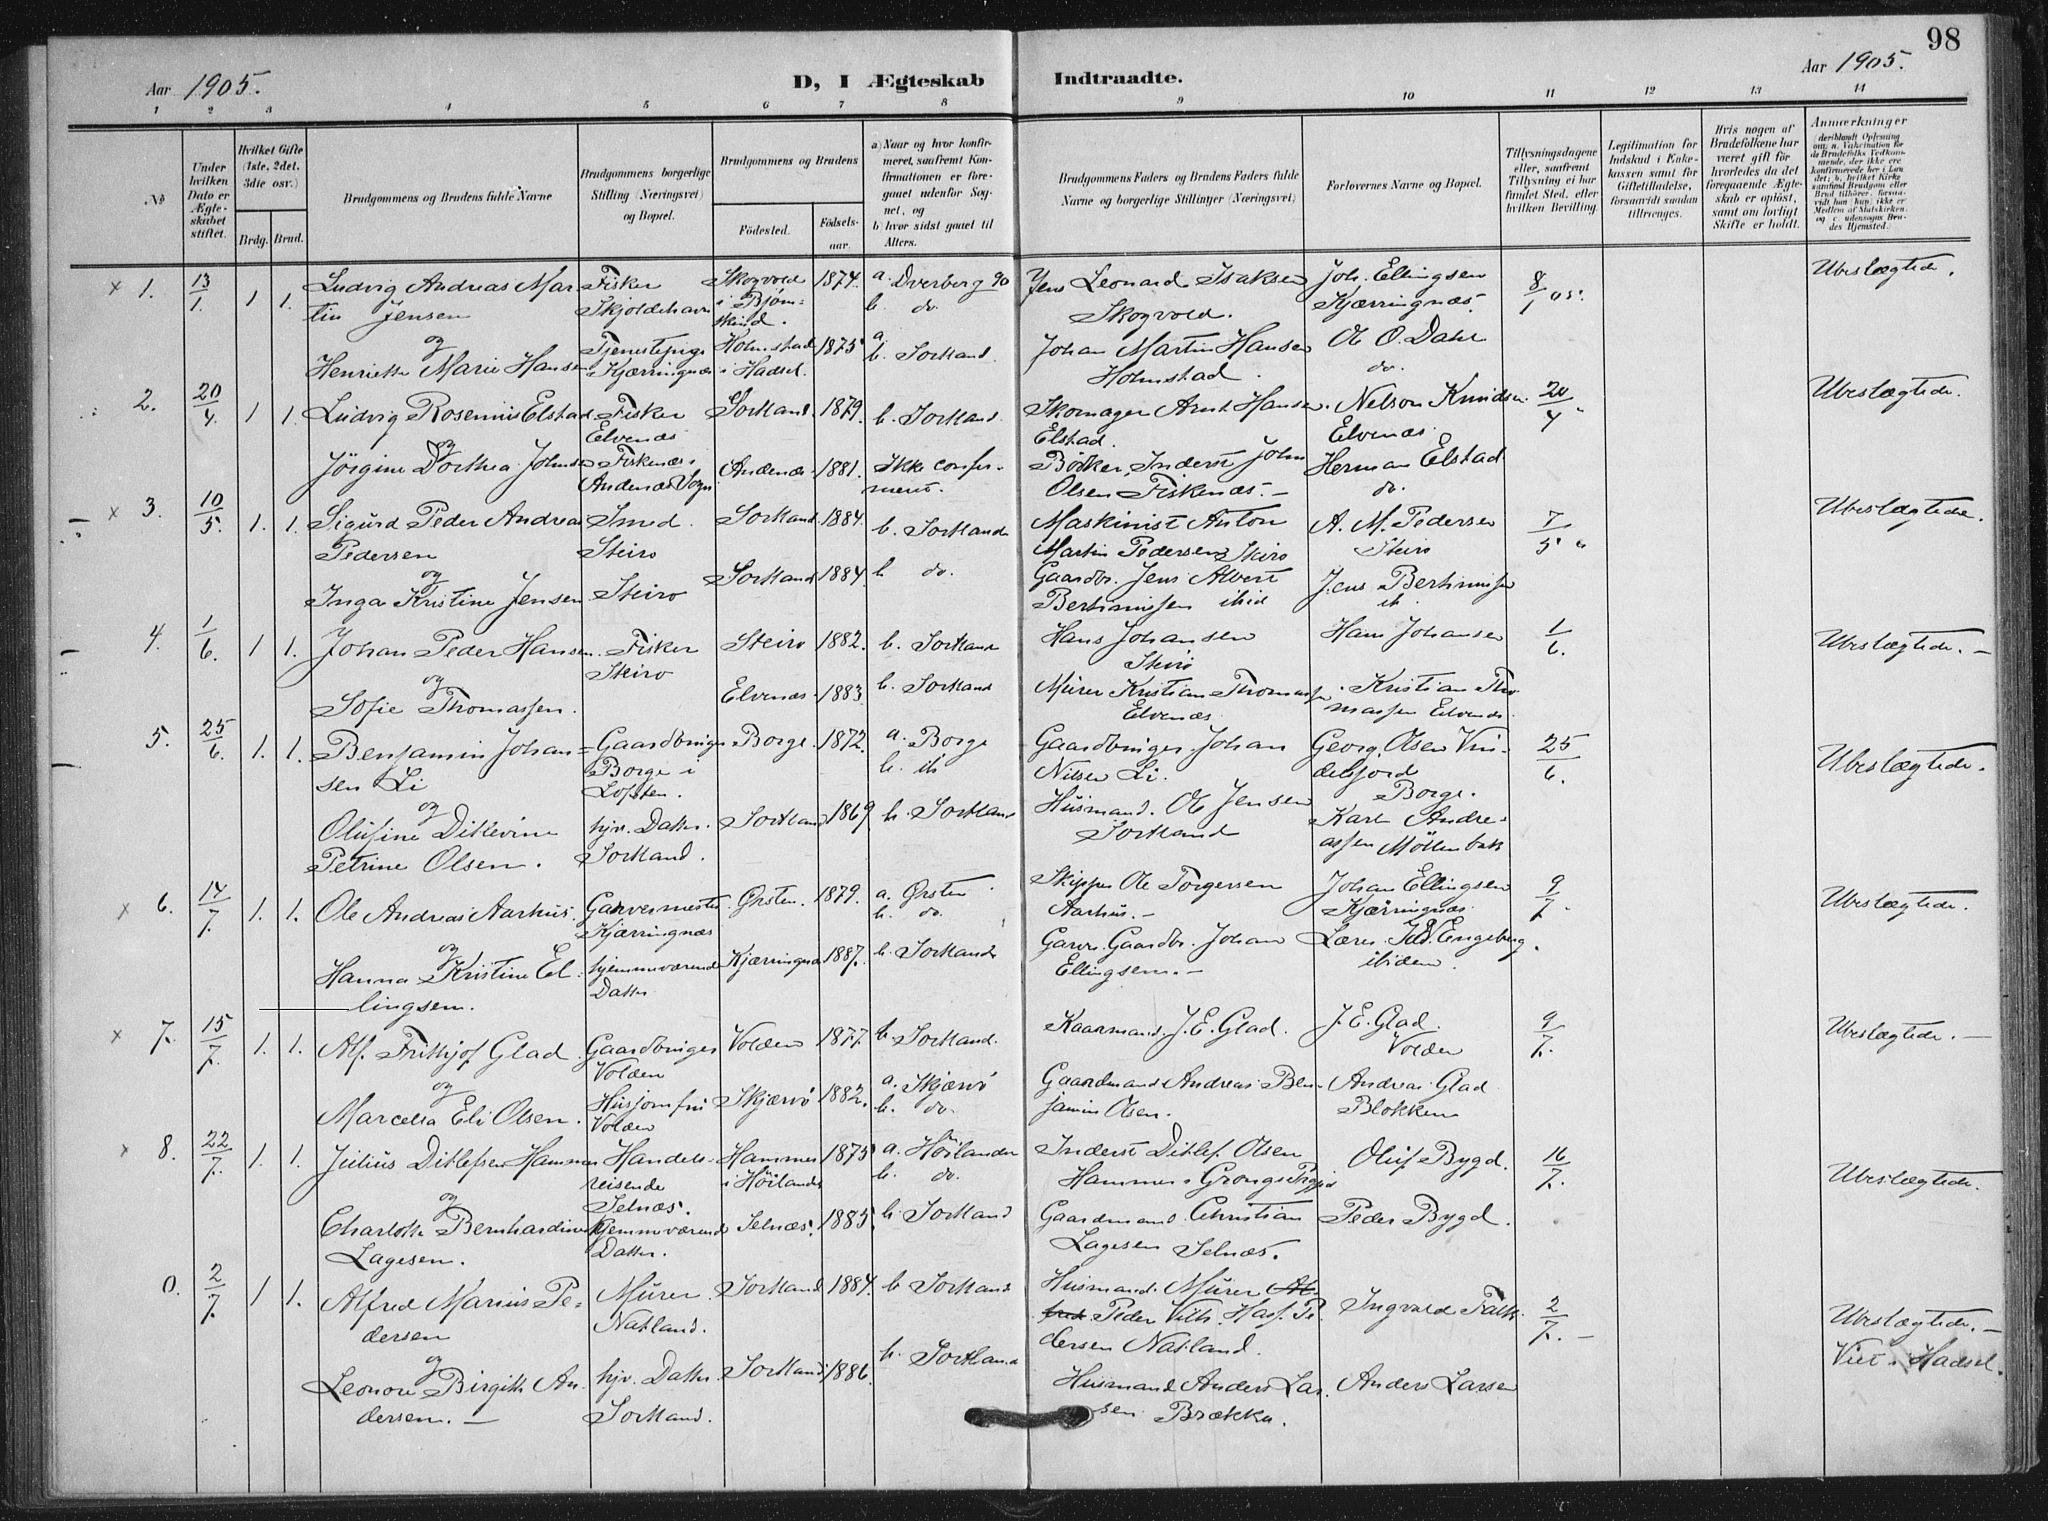 98
Aar 1905.
D, I Ægteskab Indtraadte.
Aar 1905.
1 2 3 4 5 6 7 8 9 10 11 12 13 14
No
Under hvilken Dato er Ægteskabet stiftet.
Hvilket Gifte (1ste, 2det, 3die osv.)
Brdg. Brud.
Brudgommens og Brudens fulde Navne
Brudgommens borgerlige Stilling (Næringsvei) og Bopæl.
Brudgommens og Brudens
Fødested. Fødselsaar.
a) Naar og hvor konfirmeret, saafremt Konfirmationen er foregaaet udenfor Sognet, og
b) hvor sidst gaaet til Alters.
Brudgommens Faders og Brudens Faders fulde Navne og borgerlige Stillinger (Næringsvei)
Forlovernes Navne og Bopæl.
Tillysningsdagene eller, saafremt Tillysning ei har fundet Sted, efter hvilken Bevilling.
Legitimation for Indskud i Enkekassen samt for Giftetilladelse, forsaavidt saadan tiltrænges.
Hvis nogen af Brudefolkene har været gift før hvorledes da det foregaaende Ægteskab er opløst, samt om lovligt Skifte er holdt.
Anmærkninger
(deriblandt Oplysning om: a. Vakcination for de Brudefolks Vedkommende, der ikke ere konfirmerede her i Landet; b. hvilket Kirkesamfund Brudgom eller Brud tilhører, forsaavidt han (hun) ikke er Medlem af Statskirken, og c. udensogns Brudes Hjemsted.)
x 1. 13/1. 1 1. Ludvig Andreas Mar Fisker Skogvold 1874. a. Dverberg 90 Jens Leonard Isaksen Joh. Ellingsen 8/1 05. Ubeslægtede.
tin Jensen Skjoldehavn i Bjørn b. do. Skogvold. Kjærringnæs.
skind.
og Tjenestepige Holmstad 1875 a. Johan Martin Hansen Ole O. Dahl
Henriette Marie Hansen Kjærringnæs i Hadsel. b. Sortland. Holmstad. do.
2. 20/4. 1 1. Ludvig Rosenius Elstad Fisker Sortland 1879. b. Sortland. Skomager Arnt Hansen Nelson Knudsen 20/4 " Ubeslægtede.
Elvenæs Elstad. Elvenæs.
og
Jörgine Dorthea Johnsen Fiskenæs Andenæs 1881. Ikke confir- Bödker, Inderst John Herman Elstad
Andenæs Sogn meret. Olsen Fiskenæs.— do.
x 3. 10/5. 1. 1. Sigurd Peder Andreas Smed. Sortland 1884. b. Sortland Maskinist Anton A. M. Pedersen 7/5 " Ubeslægtede.
Pedersen Steiro Martin Pedersen Steiro Steiro
og Sortland 1884. b do. Gaardbr. Jens Albert Jens Bertinussen
Inga Kristine Jensen. Steiro Bertinussen ibid ib.
4. 1/6. 1 1. Johan Peder Hansen. Fisker Steiro 1882. b. Sortland Hans Johansen Hans Johansen 1/6. Ubeslægtede.—
Steiro Steirö
og Elvenæs 1883. b. Sortland Murer Kristian Thomassen Kristian Tho
Sofie Thomassen. Elvenæs. massen Elvenæs.
5. 25/6. 1. 1. Benjamin Johan= Gaardbruger Borge 1872. a. Borge Gaardbruger. Johan Georg Olsen Vin- 25/6. Ubeslægtede.
sen Li Borge i b. ib Nilsen Li. delsjord
og Lofoten. Borge.
Olufine Ditlevine hjv. Datter. Sortland 1869 b. Sortland Husmand. Ole Jensen Karl Andre-
Petrine Olsen. Sortland. Sortland assen Möllenbak
x 6. 14/7. 1. 1. Ole Andreas Aarhus. Garvermester Ørsten. 1879. a. Ørsten Skipper Ole Torgersen Johan Ellingsen 9/7. Ubeslægtede.
Kjærringnæs b. do. Aarhus.— Kjærringnæs
og
Hanna Kristine El hjemmeværende Kjærringnæs 1887. b. Sortland Garv. Gaardbr. Johan Lærer. Engeberg.
lingsen. Datter Ellingsen.— ibidem.
x 7. 15/7. 1. 1. Alf Frithjof Glad Gaardbruger Volden 1877. b. Sortland. Kaarmand. J. E. Glad. J. E. Glad. 9/7. Ubeslægtede.—
Volden Volden
og Husjomfru Skjærvö 1882. a. Skjærvö Gaardmand Andreas Ben- Andreas Glad
Marcelia Eli Olsen. Volden b. do. jamin Olsen. Blokken
x 8. 22/7. 1. 1. Julius Ditlefsen Hammer Handels- Hammer 1875 a. Höilandet Inderst Ditlef Olsen Oluf Bygd. 16/7. Ubeslægtede.
reisende i Höilandet b. do. Hammer i Grongs
og Selnæs.
Charlotte Bernhardine hjemmeværende Selnæs. 1885. b. Sortland Gaardmand Christian Peder Bygd.
Lagesen. Datter. Lagesen Selnæs.
0. 2/7. 1 1. Alfred Marius Pe= Murer Sortland 1884. b Sortland Husmand. Murer Ingvald Falk. 2/7.— Ubeslægtede.—
dersen Natland. Peder Vilh. Pe Viet i Hadsel.
og dersen Natland.
Leonore Birgitte An hjv. Datter. Sortland 1886. b. Sortland Husmand Anders Lar Anders Larsen
dersen.— Sortland. sen Brækka.